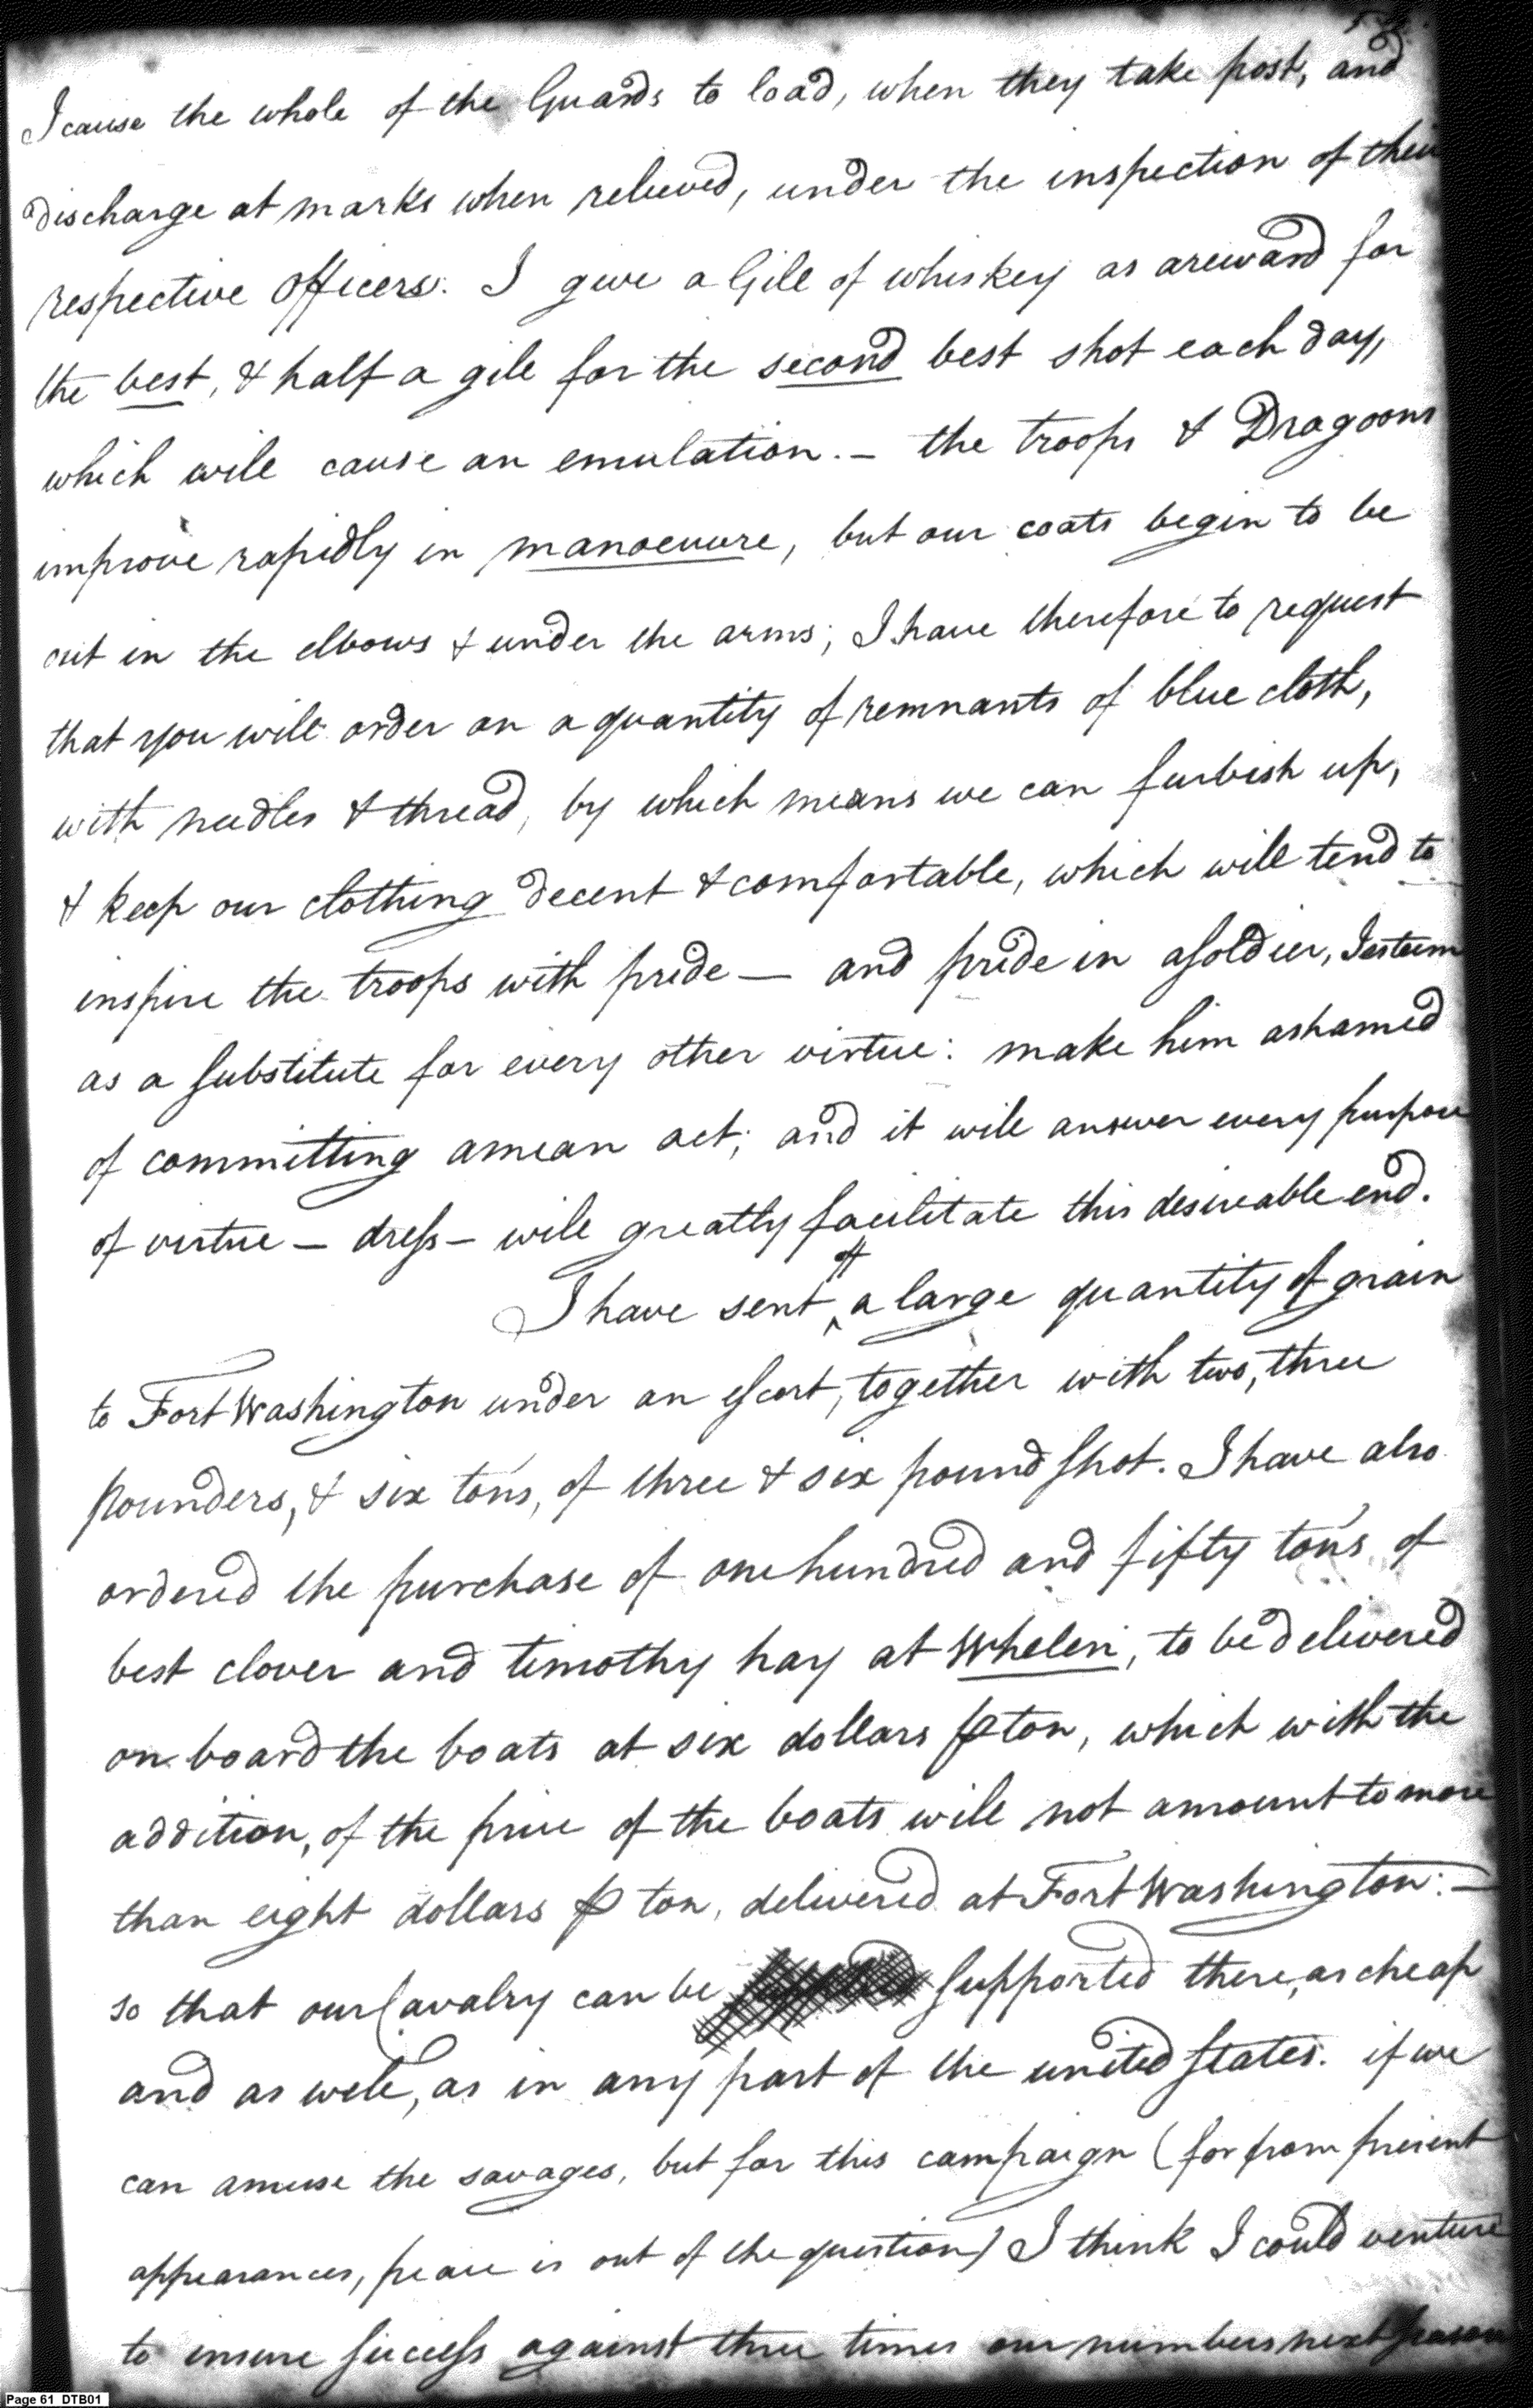 I cause the whole of the Guards to load, when they take post, and
discharge at marks when relieved, under the inspection of their
respective officers. I give a Gill of whiskey as a reward for
the best, & half a gill for the second best shot each day,
which will cause an emulation. – the troops & Dragoons
improve rapidly in manoeuvre, but our coats begin to be
out in the elbows & under the arms; I have therefore to request
that you will order on a quantity of remnants of blue cloth,
with needles & thread, by which means we can furbish up,
& keep our clothing decent & comfortable, which will tend to
inspire the troops with pride — and pride in a soldier, I esteem
as a substitute for every other virtue: make him ashamed
of committing a mean act; and it will answer every purpose
of virtue – dress – will greatly facilitate this desireable end.
I have sent off a large quantity of grain
to Fort Washington under an escort, together with two, three
pounders, & six tons, of three & six pound shot. I have also
ordered the purchase of one hundred and fifty tons of
best clover and timothy hay at Whelen, to be delivered
on board the boats at six dollars ⅌ ton, which with the
addition, of the price of the boats will not amount to more
than eight dollars ⅌ ton, delivered at Fort Washington: –
so that our Cavalry can be supported there, as cheap
and as well, as in any part of the united States. if we
can amuse the savages, but for this campaign (for from present
appearances, peace is out of the question) I think I could venture
to insure success against three times our numbers next season
Page 61 DTB01